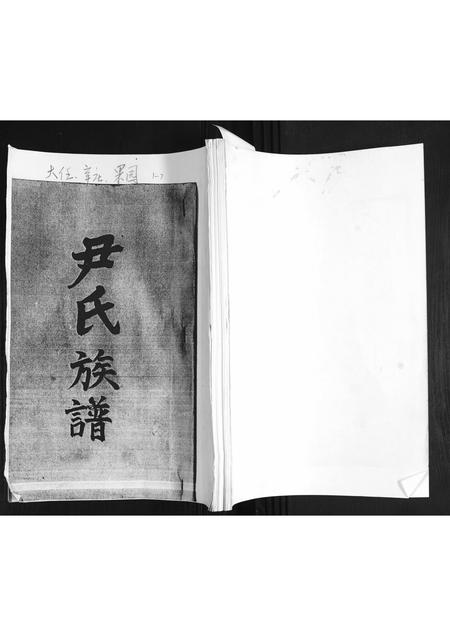 大任、辛北、果园 1-7
尹氏族譜